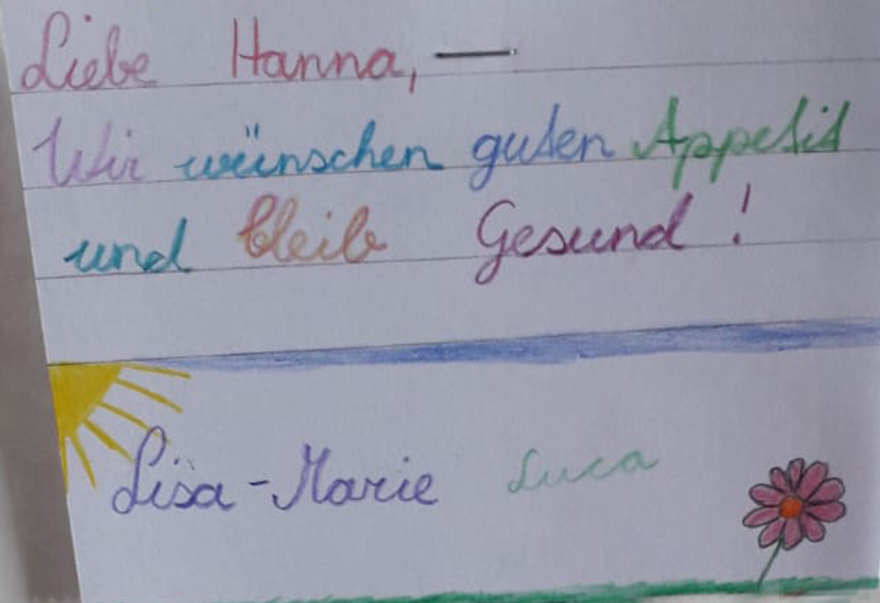 Liebe Hanna,
Wir wünschen guten Appetit
und bleib Gesund!
Lisa-Marie Luca